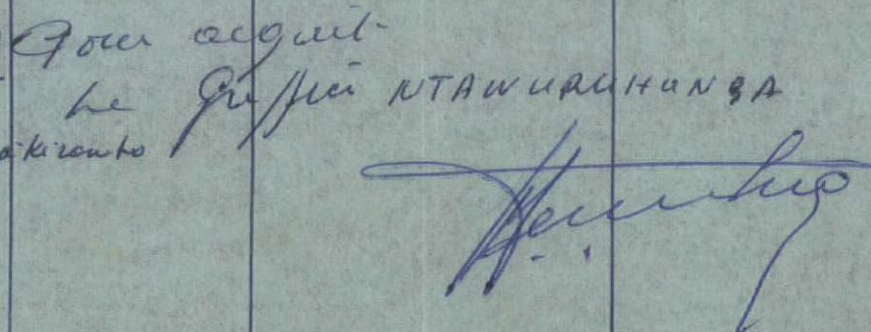 Pour acquit-
Le Greffier NTAWURUHUNGA